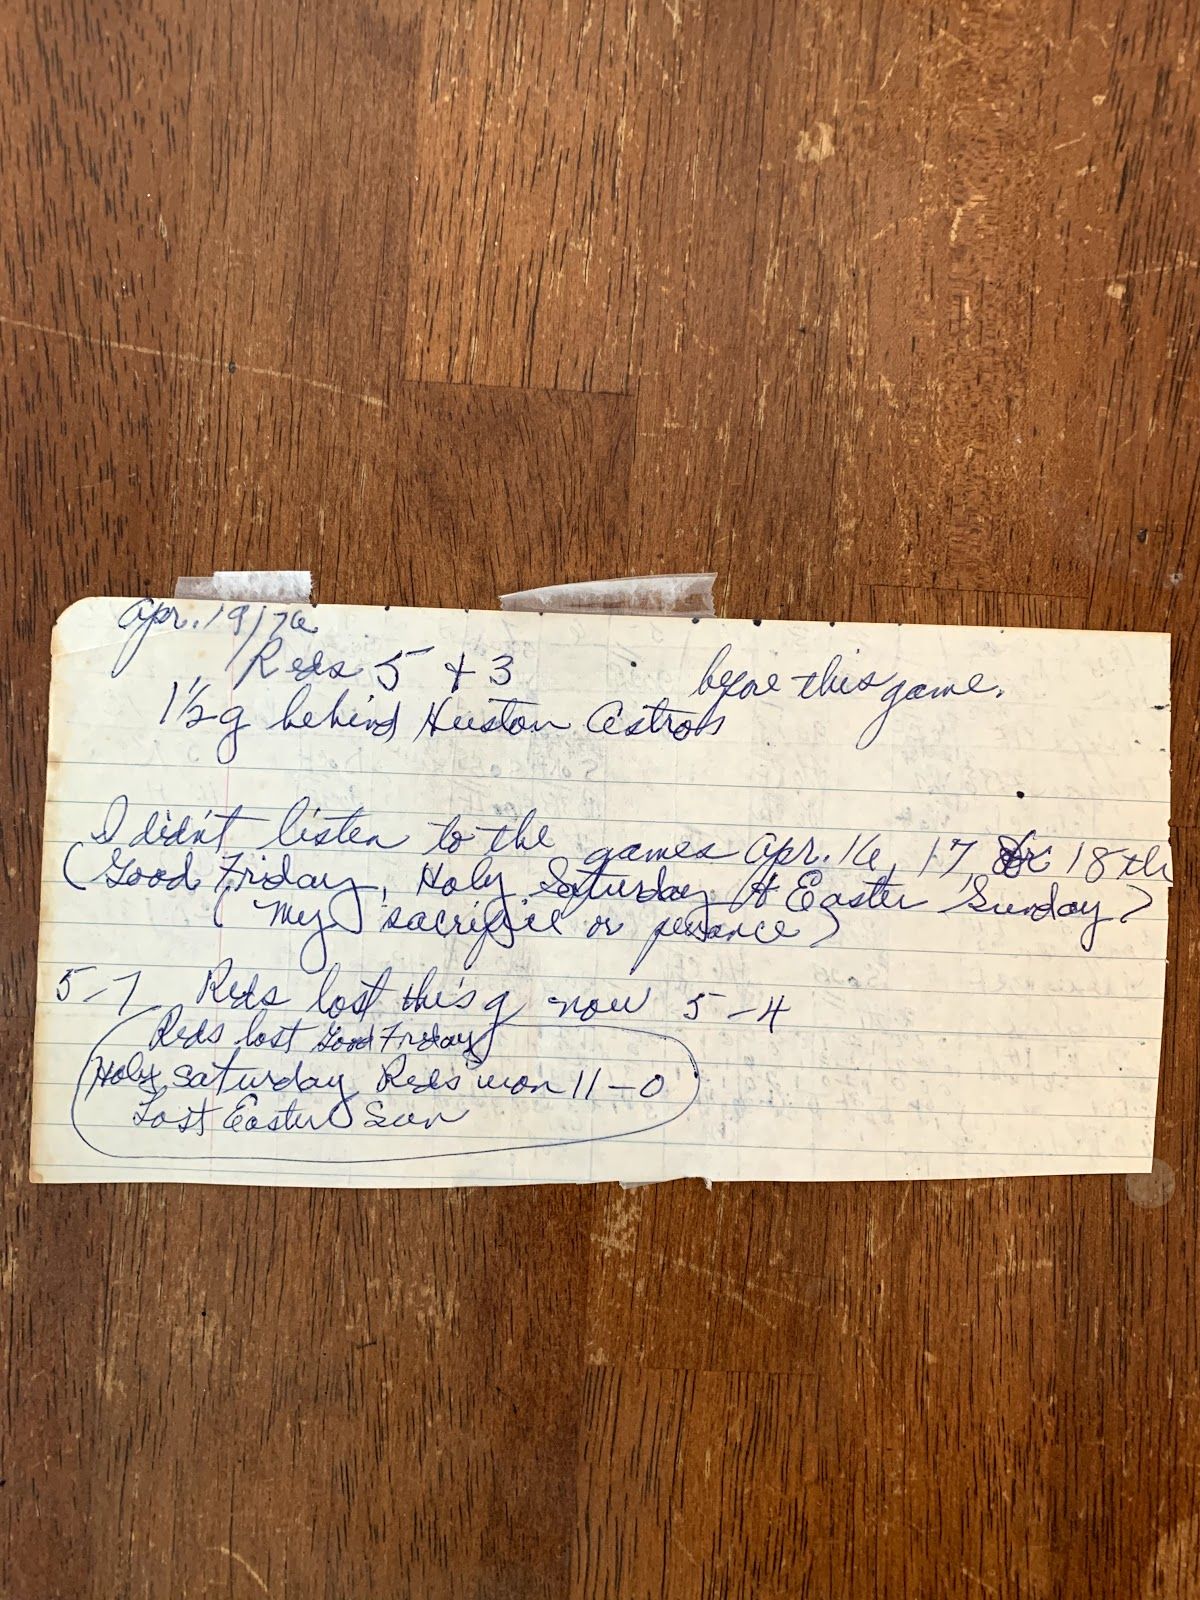 Apr. 19/76
Reds 5 + 3 before this game.
1½g behind Huston Astros
I didn't listen to the games Apr. 16, 17, or 18th
(Good Friday, Holy Saturday & Easter Sunday)
(My sacrifice or penance)
5-7 Reds lost this g now 5-4
Reds lost Good Friday
Holy Saturday Reds won 11-0
Lost Easter Sun